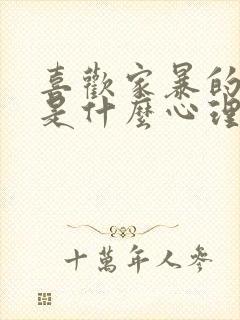 喜歡家暴的
是什麼心理
十萬年人參